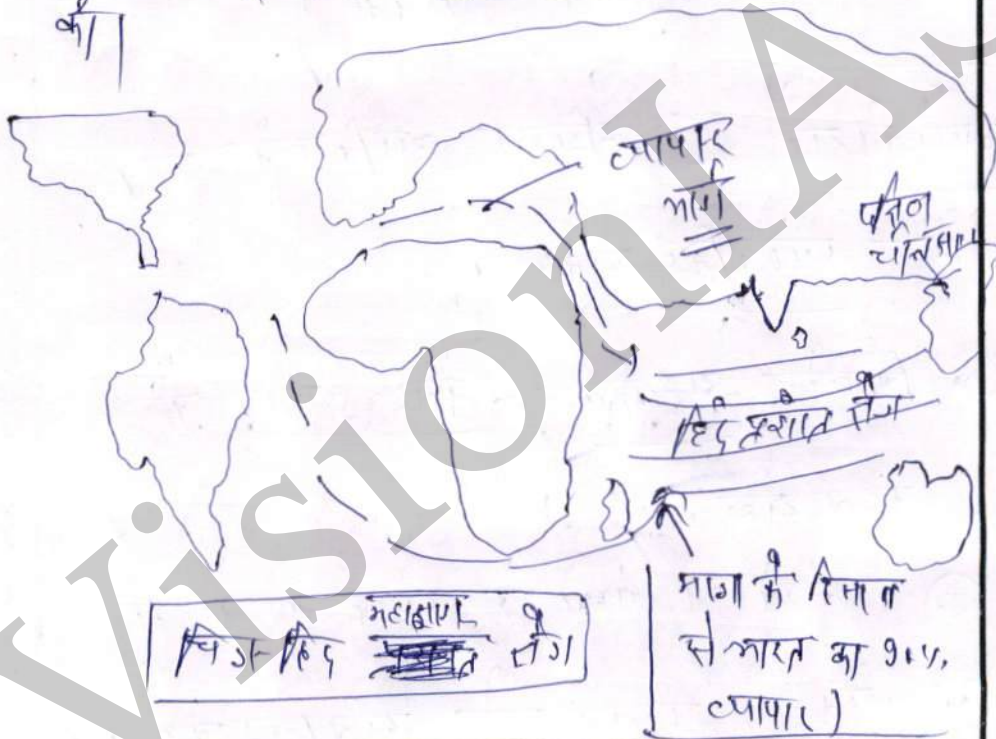 की।
व्यापार
मार्ग
दक्षिण
हिंद प्रशांत क्षेत्र
चित्र-हिंद महासागर क्षेत्र
मात्रा के हिसाब
से भारत का 90%
व्यापार)
VisionIAS